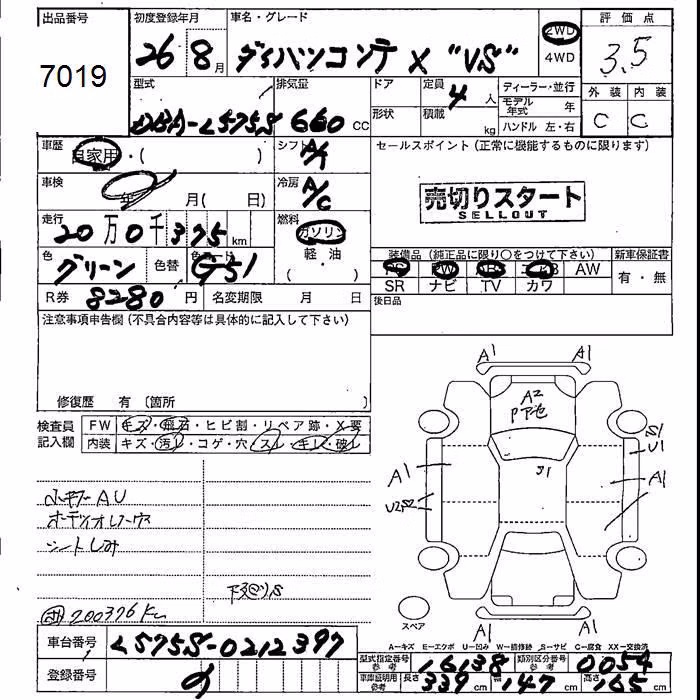 出品番号
7019
初度登録年月
26 年 8 月
車名・グレード
ダイハツコンテ X "VS"
2WD
4WD
評価点
3.5
外装 内装
C C
型式
DBA-L575S
排気量
660 CC
ドア
形状
定員
4 人
積載
kg
ディーラー・並行
モデル年式 年
ハンドル 左・右
車歴
自家用・( )
シフト
A/T
セールスポイント(正常に機能するものに限ります)
売切りスタート
SELLOUT
車検
年 月( 日)
冷房
A/C
走行
20万0千375 km
燃料
ガソリン
軽・油
色
グリーン
色替
G51
装備品(純正品に限り○をつけて下さい)
新車保証書
PS PW ABS エアB AW
SR ナビ TV カワ
有・無
R券 8280 円
名変期限 月 日
後日品
注意事項申告欄(不具合内容等は具体的に記入して下さい)
修復歴 有〔箇所
検査員
記入欄
FW キズ・飛石・ヒビ割・リペア跡・X要
内装 キズ・汚れ・コゲ・穴・スレ・キレ・破れ
A1 A1
A2
A1
S1
U1
A1
A1 A1
スペア
シートしみ
200376 Km
車台番号
L575S-0212397
登録番号
A=キズ E=エクボ U=凹み W=補修跡 S=サビ C=腐食 XX=交換済
型式指定番号
参考
16138
類別区分番号
参考
0054
車庫証明用
参考
長さ 339 cm
幅 147 cm
高さ 165 cm